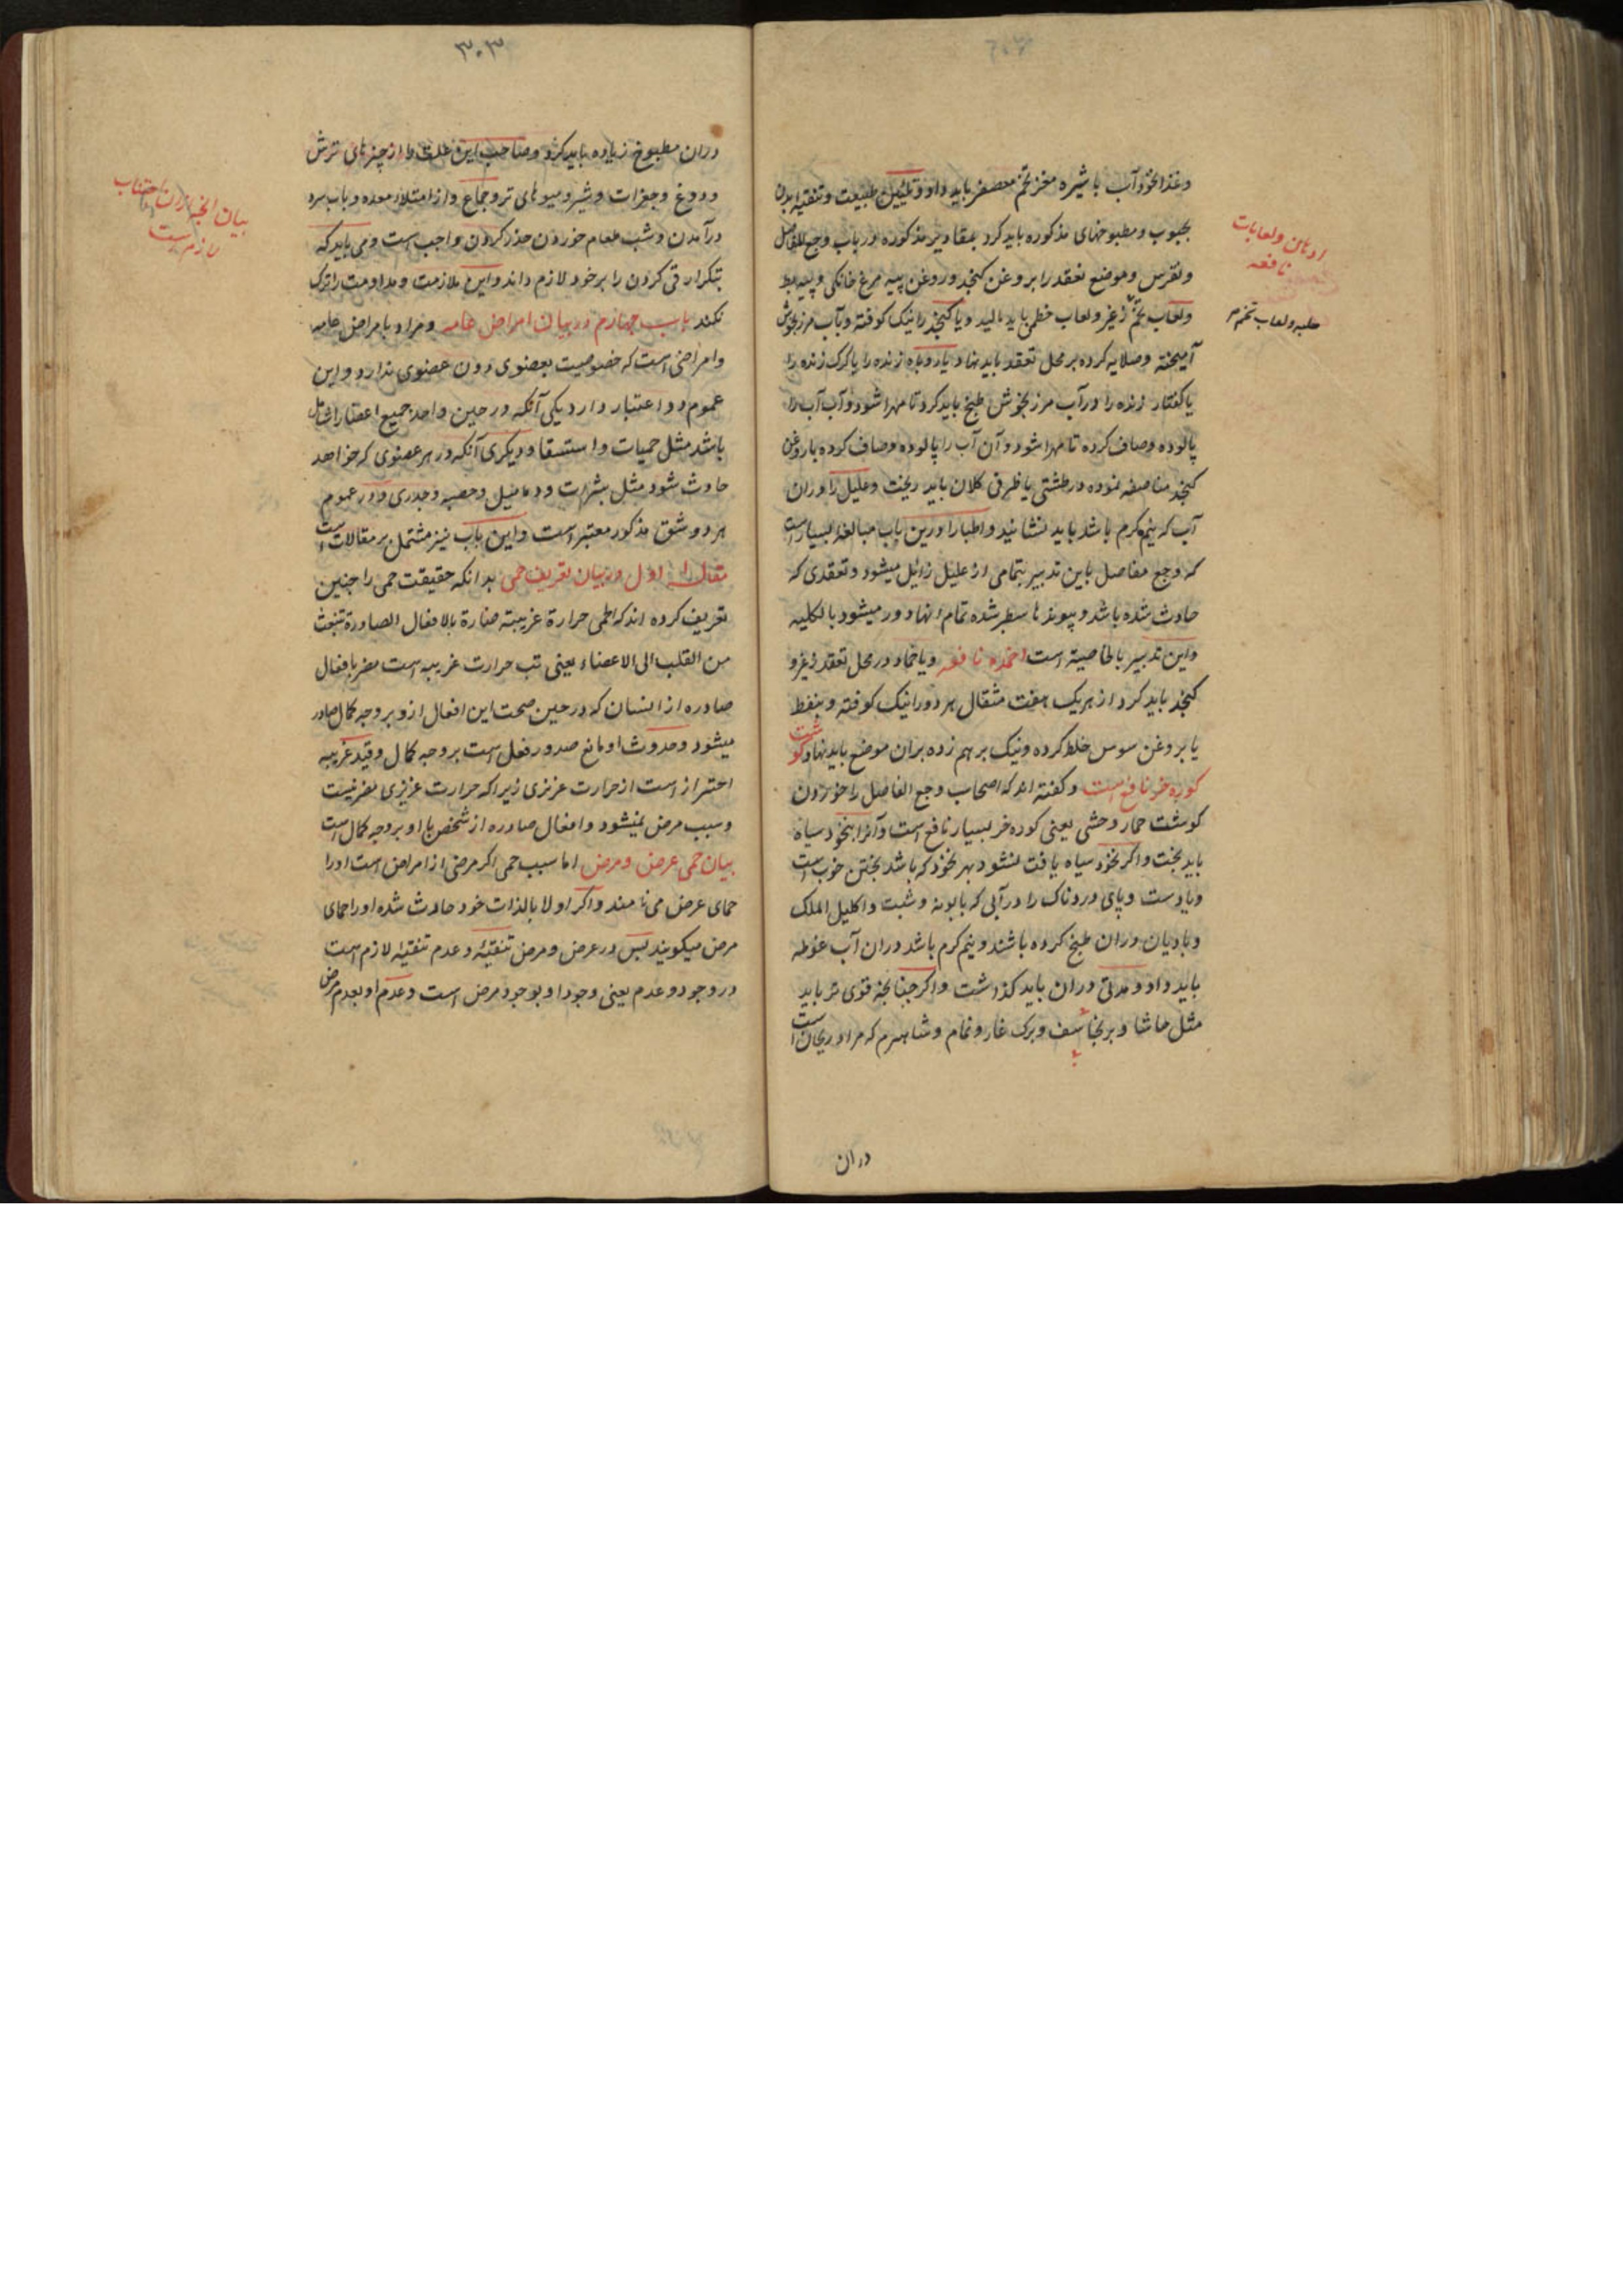 وغذا نخودآب با شیره مغز تخم معصفر باید داد و تلیین طبیعت و تنقیه ابدان
بحبوب و مطبوخهای مذکوره باید کرد بمقادیر مذکوره در باب وجع المفاصل
و نقرس و موضع تعقد را بروغن کنجد و روغن پیه مرغ خانگی و پیه بط
ولعاب تخم ولعاب خطمی باید مالید و یا کنجد را نیک کوفته وبآب مرزنجوش
آمیخته وصلایه کرده بر محل تعقد باید نهاد یا روباه زنده را یا کرک زنده را
یا کفتار زنده را در آب مرزنجوش طبخ باید کرد تا مهرا شود و آب آب را
پالوده وصاف کرده تا مهرا شود و آن آب را پالوده وصاف کرده با روغن
کنجد مناصفه نموده در طشتی یا ظرفی کلان باید ریخت وعلیل را در ان
آب که نیم کرم باشد باید نشانید واطبا را درین باب مبالغه بسیار است
که وجع مفاصل باین تدبیر بتمامی از علیل زائل میشود وتعقدی که
حادث شده باشد و پیوندها سطبر شده تمام انها دور میشود بالکلیه
واین تدبیر بالخاصیة است اضمده نافعه ویا ضماد در محل تعقد
کنجد باید کرد از هریک هفت مثقال هر دو را نیک کوفته وبنفط
یا بروغن سوس خلط کرده ونیک برهم زده بران موضع باید نهاد کوشت
کوره خر نافع است وکفته اند که اصحاب وجع المفاصل را خوردن
کوشت حمار وحشی یعنی کوره خر بسیار نافع است وآنرا بنخود سیاه
باید پخت واکر نخود سیاه یافت نشود بهر نخود که باشد پختن خوب است
ویا دست وپای دردناک را در آبی که بابونه وشبت واکلیل الملک
وبادیان دران طبخ کرده باشند ونیم کرم باشد دران آب غوطه
باید داد ومدتی دران باید کذاشت واکر چنانچه قوی تر باید
مثل حاشا و برنجاسف وبرک غار ونمام وشاهسرم که مراد ریحان است
ادهان ولعابات
نافعه
حلبه ولعاب تخم مر
دران
۳۰۳
دران مطبوخ زیاده باید کرد وصاحب این علت را از چیزهای ترش
و دوغ وجغرات وشیر ومیوهای تر وجماع واز امتلاء معده وبآب سرد
درآمدن وشب طعام خوردن حذر کردن واجب است ومی باید که
بتکرار قی کردن را بر خود لازم داند واین ملازمت ومداومت را ترک
نکند باب چهارم در بیان امراض عامه ومراد بامراض عامه
وامراضی است که خصوصیت بعضوی دون عضوی ندارد واین
عموم دو اعتبار دارد یکی آنکه در حین واحد جمیع اعضا را شامل
باشد مثل حمیات واستسقا ودیکری آنکه در هر عضوی که خواهد
حادث شود مثل بثرات ودمامیل وحصبه وجدری ودر عموم
هر دو شق مذکور معتبر است واین باب نیز مشتمل بر مقالات است
مقاله اول در بیان تعریف حمی بدانکه حقیقت حمی را چنین
تعریف کرده اند که الحمی حرارة غریبة ضارة بالافعال الصادرة تنبعث
من القلب الی الاعضاء یعنی تب حرارت غریبه است مضر بافعال
صادره از انسان که در حین صحت این افعال ازو بر وجه کمال صادر
میشود وحدوث او مانع صدور فعل است بر وجه کمال وقید غریبه
احتراز است از حرارت غریزی زیرا که حرارت غریزی مضر نیست
وسبب مرض نمیشود وافعال صادره از شخص با او بر وجه کمال است
بیان حمی عرض ومرض اما سبب حمی اکر مرضی از امراض است اورا
حمای عرض می‌نامند واکر اولا بالذات خود حادث شده اورا حمای
مرض میکویند پس در عرض ومرض تنقیه وعدم تنقیه لازم است
در وجود وعدم یعنی وجود او بوجود مرض است وعدم او بعدم مرض
بیان انچه ازان اجتناب
لازم است